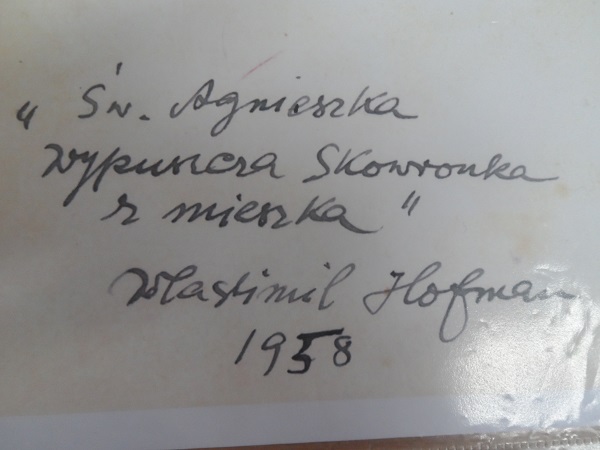 „Św. Agnieszka
wypuszcza Skowronka
z mieszka"
Wlastimil Hofman
1958